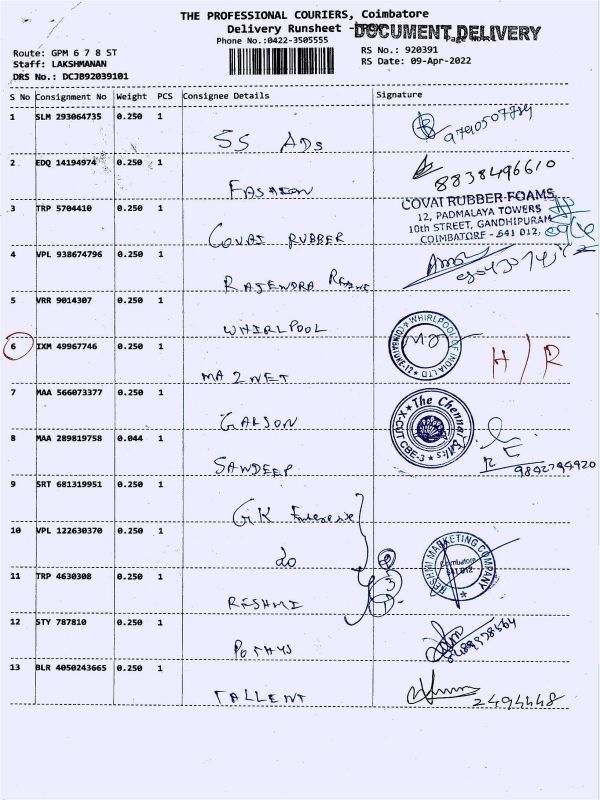 THE PROFESSIONAL COURIERS, Coimbatore
Delivery Runsheet - DOCUMENT DELIVERY
Phone No.:0422-3505555
Route: GPM 6 7 8 ST
RS No.: 920391
Staff: LAKSHMANAN
RS Date: 09-Apr-2022
DRS No.: DCJB92039101
S No Consignment No Weight PCS Consignee Details Signature
1 SLM 293064735 0.250 1
SS ADS
2 EDQ 14194974 0.250 1
8838496610
FASHION
COVAI RUBBER FOAMS
3 TRP 5704410 0.250 1
12, PADMALAYA TOWERS
10th STREET, GANDHIPURAM
COIMBATORE - 641 012,
COVAI RUBBER
4 VPL 938674796 0.250 1
RAJENDRA
5 VRR 9014307 0.250 1
WHIRLPOOL
WHIRLPOOL OF INDIA LTD
6 IXM 49967746 0.250 1
H/R
MA 2 NET
7 MAA 566073377 0.250 1
The Chennai Silks
X-CUT CBE-3
8 MAA 289819758 0.044 1
SANDEEP
9892794920
9 SRT 681319951 0.250 1
GK
10 VPL 122630370 0.250 1
do
RESHMI MARKETING COMPANY
Coimbatore
641 012
11 TRP 4630308 0.250 1
RESHMI
12 STY 787810 0.250 1
POTHYS
13 BLR 4050243665 0.250 1
TALLENT
2494448